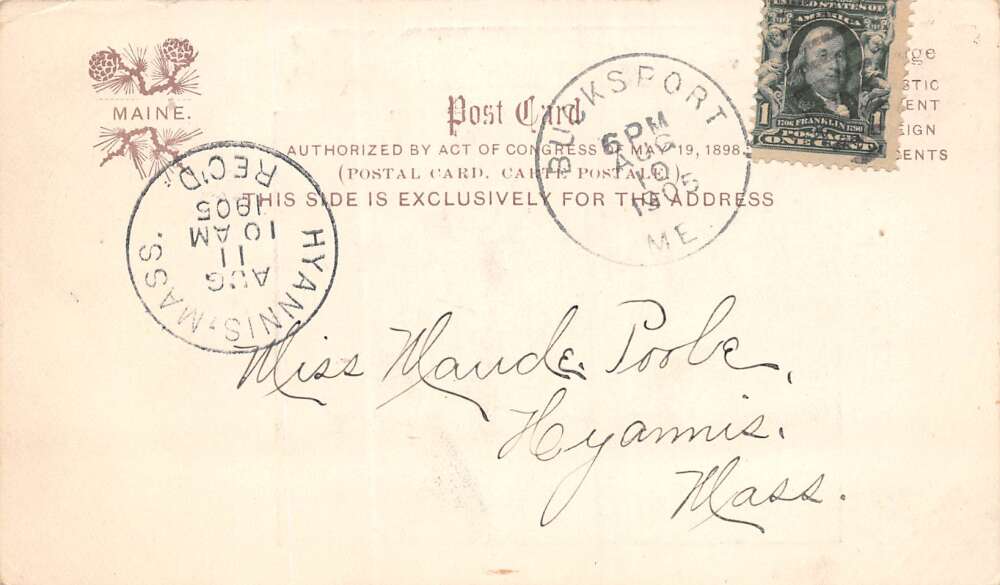 MAINE.
Post Card
AUTHORIZED BY ACT OF CONGRESS OF MAY 19, 1898.
(POSTAL CARD. CARTE POSTALE)
THIS SIDE IS EXCLUSIVELY FOR THE ADDRESS
UNITED STATES OF
AMERICA
1706 FRANKLIN 1790
1 POSTAGE 1
ONE CENT
BUCKSPORT
6 PM
AUG
10
1905
ME.
HYANNIS, MASS.
AUG
11
10 AM
1905
REC'D
Miss Maude
Hyannis.
Mass.